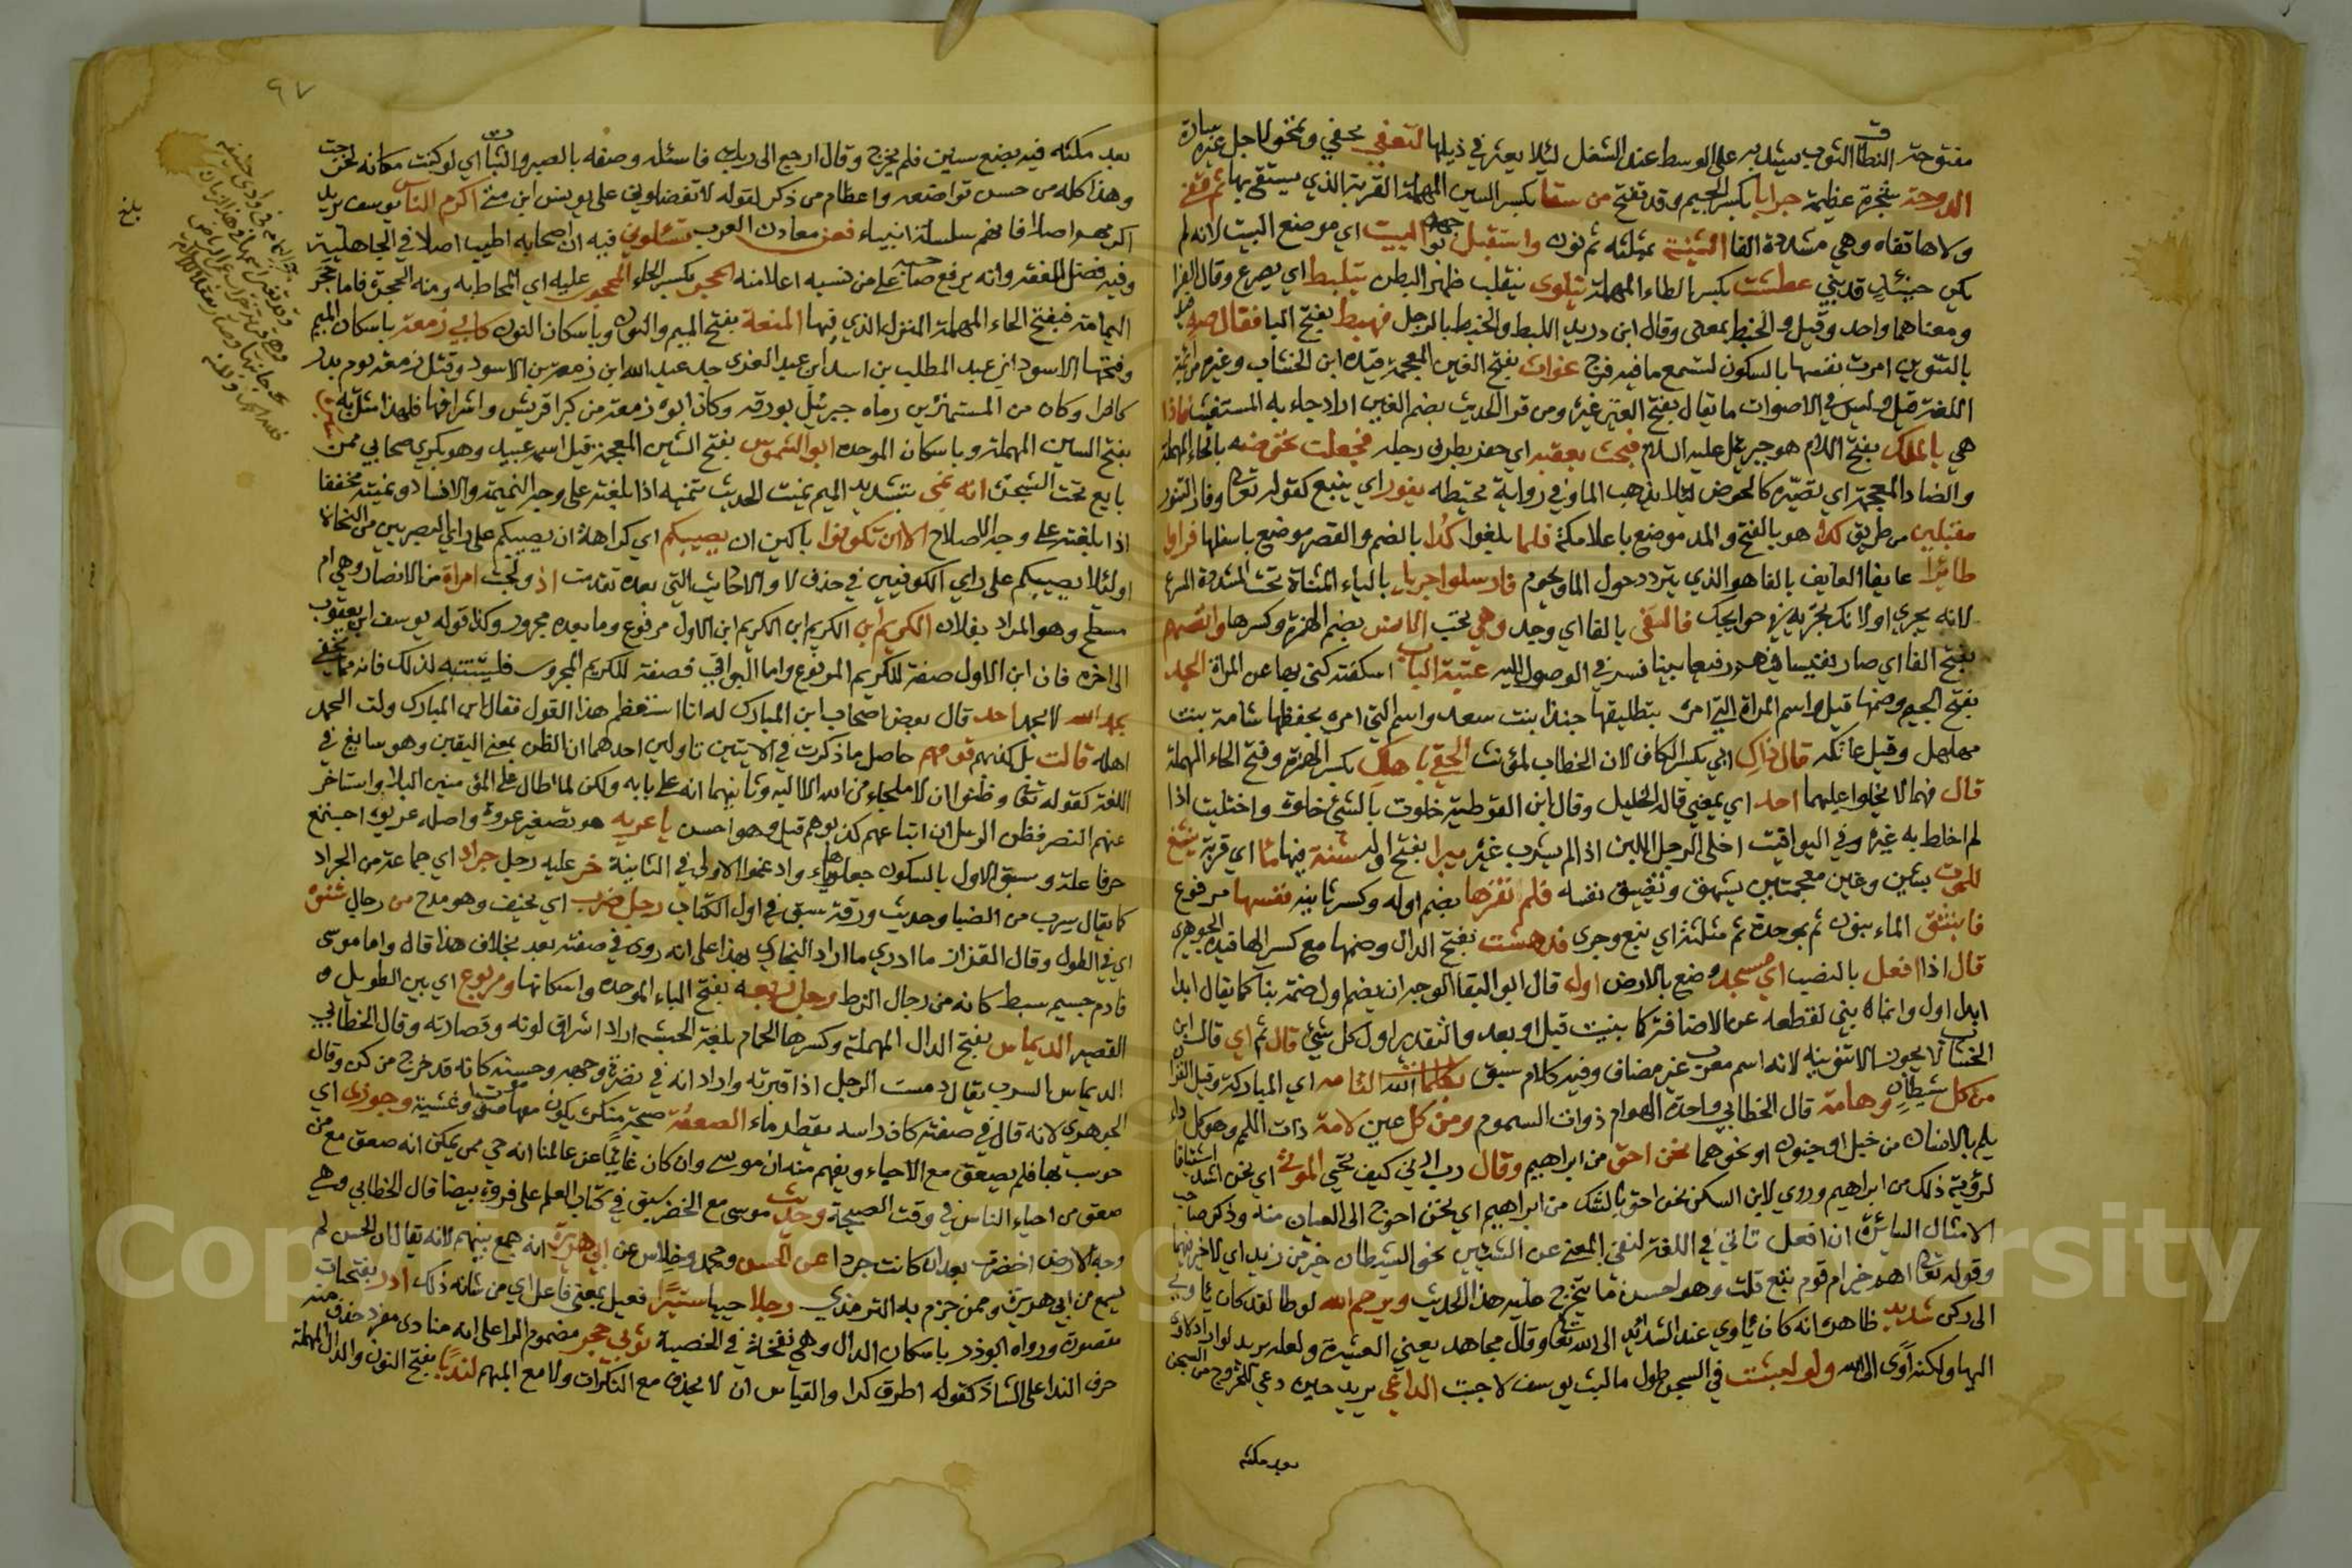 مفتوحة النطاق الثوب يشد به على الوسط عند الشغل لئلا يعثر في ذيلها لتعفي تخفي وتمحو لاجل غيرة سارة
الدوحة شجرة عظيمة جرابا بكسر الجيم وقد تفتح من سقا بكسر السين المهملة القربة الذي يستقي بها ثم قفى
ولاها قفاه وهي مشددة الفا الثنية بمثلثه ثم نون واستقبل نحو جهة البيت اي موضع البيت لانه لم
يكن حينئذ قد بني عطشت بكسر الطاء المهملة يتلوى يتقلب ظهرا لبطن يتلبط اي يصرع وقال القزا
ومعناهما واحد وقيل والخبط بمعنى وقال ابن دريد اللبط والخبط بالرجل فهبط بفتح البا فقال صه
بالتنوين امرت نفسها بالسكون لتسمع ما فيه فرج غواث بفتح الغين المعجمة قيده ابن الخشاب وغيره من ائمة
اللغة قيل وليس في الاصوات ما يقال بفتح الغير غيره ومن قر الحديث بضم الغين اراد جاء به المستغيث فاذا
هي بالملك بفتح اللام هو جبريل عليه السلام فبحث بعقبه اي حفر بطرف رجله فجعلت تحوضه بالحاء المهملة
والضاد المعجمة اي تصيره كالحوض لئلا يذهب الما وفي رواية تحيطه يفور اي ينبع كقوله تعالى وفار التنور
مقبلين من طريق كداء هو بالفتح والمد موضع باعلا مكة فلما بلغوا كدا بالضم والقصر موضع باسفلها فراوا
طائرا عايفا العايف بالفا هو الذي يتردد حول الما ويحوم فارسلوا جريا بالياء المثناة تحت المشددة
لانه يجري او لانك تجريه في حوايجك فالفى بالفا اي وجد وهي تحب الانس بضم الهمزة وكسرها وانفسهم
بفتح الفا اي صار نفيسا فيهم رفيعا يتنافس في الوصول اليه عتبة الباب اسكفته كنى بها عن المراة الجد
بفتح الجيم وضمها قيل واسم المراة التي امره بتطليقها جذا بنت سعد واسم التي امره بحفظها شامة بنت
مهلهل وقيل عاتكه قال ذاك ابي بكسر الكاف لان الخطاب لمؤنث الحقي باهلك بكسر الهمزة وفتح الحاء المهملة
قال فهما لا يخلوا عليهما احد اي بمعنى قاله الخليل وقال ابن القوطية خلوت بالشئ خلوة واختليت اذا
لم اخلط به غيره وفي اليواقيت اخلى الرجل اللبن اذا لم يشرب غيره يبرا بفتح اوله شنة فيها ما اي قربة ينشغ
للموت بشين وغين معجمتين يشهق وتضيق نفسه فلم تقرها بضم اوله وكسر ثانيه نفسها مرفوع
فانبثق الماء بنون ثم بموحدة ثم مثلثة اي نبع وجرى فدهشت بفتح الدال وضمها مع كسر الها قيده الجوهري
قال اذا افعل بالنصب اي مسجد وضع بالارض اول قال ابو البقا الوجه ان يضم اول ضمة بنا كما يقال ابدا
ابدل اول وانماه بني لقطعه عن الاضافة كما بنيت قبل وبعد والتقدير اول كل شئ قال ثم اي قال ابن
الخشاب لا يجوز الا تنوينه لانه اسم معرب غير مضاف وفيه كلام سبق بكلمات الله التامه اي المباركة وقيل القران
من كل شيطان وهامة قال الخطابي واحدة الهوام ذوات السموم ومن كل عين لامة ذات اللمم وهو كل داء
يلم بالانسان من خبل او جنون او نحوهما نحن احق من ابراهيم وقال رب ارني كيف تحيي الموتى اي نحن اشد اشتياقا
لرؤية ذلك من ابراهيم وروي لابن السكن نحن احق بالشك من ابراهيم اي نحن احوج الى العيان منه وذكر صاحب
الامثال السائرة ان افعل تاتي في اللغة لنفي المعنى عن الشيئين نحو الشيطان خير من زيد اي لا خير فيهما
وقوله تعالى اهم خير ام قوم تبع قلت وهو احسن ما يتخرج عليه هذا الحديث ويرحم الله لوطا لقد كان ياوي
الى ركن شديد ظاهره انه كان ياوي عند الشدائد الى الله تعالى وقال مجاهد يعني العشيرة ولعله يريد لو اراد لاوى
اليها ولكنه اوى الى الله ولو لبثت في السجن طول ما لبث يوسف لاجبت الداعي يريد حين دعي للخروج من السجن
بعد مكثه
٩٧
بعد مكثه فيه بضع سنين فلم يخرج وقال ارجع الى ربك فاسئله وصفه بالصبر والثبات اي لو كنت مكانه لخرجت
وهذا كله من حسن تواضعه واعظام من ذكر لقوله لا تفضلوني على يونس ابن متى اكرم الناس يوسف يريد
اكرمهم اصلا فانهم سلسلة انبياء فعن معادن العرب تسئلوني فيه ان اصحابه اطيب اصلا في الجاهلية
وفيه فضل الفقه وانه يرفع صاحبه على من نسبه اعلا منه الحجر بكسر الحاء المحجور عليه اي المحاط به ومنه الحجرة فاما حجر
اليمامة فبفتح الحاء المهملة المنزل الذي فيها المنعة بفتح الميم والنون وباسكان النون كابي زمعة باسكان الميم
وفتحها الاسود ابن عبد المطلب بن اسد ابن عبد العزى جد عبد الله ابن زمعة بن الاسود وقتل زمعة يوم بدر
كافرا وكان من المستهزئين رماه جبرئيل بورقه وكان ابوه زمعة من كبرا قريش واشرافها فلهذا مثل به
بفتح السين المهملة وباسكان الموحده ابو الشموس بفتح الشين المعجمة قيل اسمه عبيد وهو بكري صحابي ممن
بايع تحت الشجرة انه نمى بتشديد الميم نميت الحديث تنميه اذا بلغته على وجه النميمة والافساد ونميته مخففا
اذا بلغته على وجه الاصلاح الا ان تكونوا باكين ان يصيبكم اي كراهة ان يصيبكم على راي البصريين من النحاة
او لئلا يصيبكم على راي الكوفيين في حذف لا والاحاديث التي بعده تقدمت اذ ولجت امراة من الانصار وهي ام
مسطح وهو المراد بفلان الكريم ابن الكريم ابن الكريم ابن الاول مرفوع وما بعده مجرور وكذا قوله يوسف ابن يعقوب
الى اخره فان ابن الاول صفة للكريم المرفوع واما البواقي فصفة للكريم المجرور فليتنبه لذلك فانه مما يخفى
بحمد الله لا بحمد احد قال بعض اصحاب ابن المبارك له انا استعظم هذا القول فقال ابن المبارك ولت الحمد
اهله قالت بل كذبهم قومهم حاصل ما ذكرت في الايتين تاولين احدهما ان الظن بمعنى اليقين وهو سايغ في
اللغة كقوله تعالى وظنوا ان لا ملجاء من الله الا اليه وثانيهما انه على بابه ولكن لما طال على المؤمنين البلاء واستاخر
عنهم النصر فظن الرسل ان اتباعهم كذبوهم قيل وهو احسن يا عريه هو تصغير عروة واصله عريوة اجتمع
حرفا علة وسبق الاول بالسكون جعلوها ياء وادغموا الاولى في الثانية خر عليه رجل جراد اي جماعة من الجراد
كما يقال سرب من الضبا وحديث ورقة سبق في اول الكتاب رجل ضرب اي نحيف وهو مدح من رجال شنوة
اي في الطول وقال القزاز ما ادري ما اراد البخاري بهذا على انه روى في صفته بعد بخلاف هذا قال واما موسى
فادم جسيم سبط كانه من رجال الزط رجل ربعه بفتح الباء الموحده واسكانها ومربوع اي بين الطويل و
القصير الديماس بفتح الدال المهملة وكسرها الحمام بلغة الحبشه اراد اشراق لونه ونضارته وقال الخطابي
الديماس السرب يقال دمست الرجل اذا قبرته واراد انه في نضرة وجهه وحسنه كانه قد خرج من كن وقال
الجوهري لانه قال في صفته كان راسه يقطر ماء الصعقة صيحة منكرة يكون معها موت او غشية وجوزي اي
حوسب بها فلم يصعق مع الاحياء ويفهم منه ان موسى وان كان غائبا عن عالمنا انه حي ممن يمكن انه صعق مع من
صعق من احياء الناس في وقت الصيحة وحديث موسى مع الخضر سبق في كتاب العلم على فروة بيضا قال الخطابي وهي
وجه الارض اخضرت بعد ان كانت جردا عن الحسن ومحمد وخلاس عن ابي هريرة انه جمع بينهم لانه يقال ان الحسن لم
يسمع من ابي هريرة وممن جزم به الترمذي رجلا حييا ستيرا فعيل بمعنى فاعل اي من شانه ذلك ادر بفتحات
مقصورة ورواه ابو ذر باسكان الدال وهي نفخة في الخصية ثوبي حجر مضموم الرا على انه منادى مفرد حذف منه
حرف الندا على الشاذ كقوله اطرق كرا والقياس ان لا يحذف مع النكرات ولا مع المبهم لندبا بفتح النون والدال المهملة
بلغ
Copyright © King Saud University